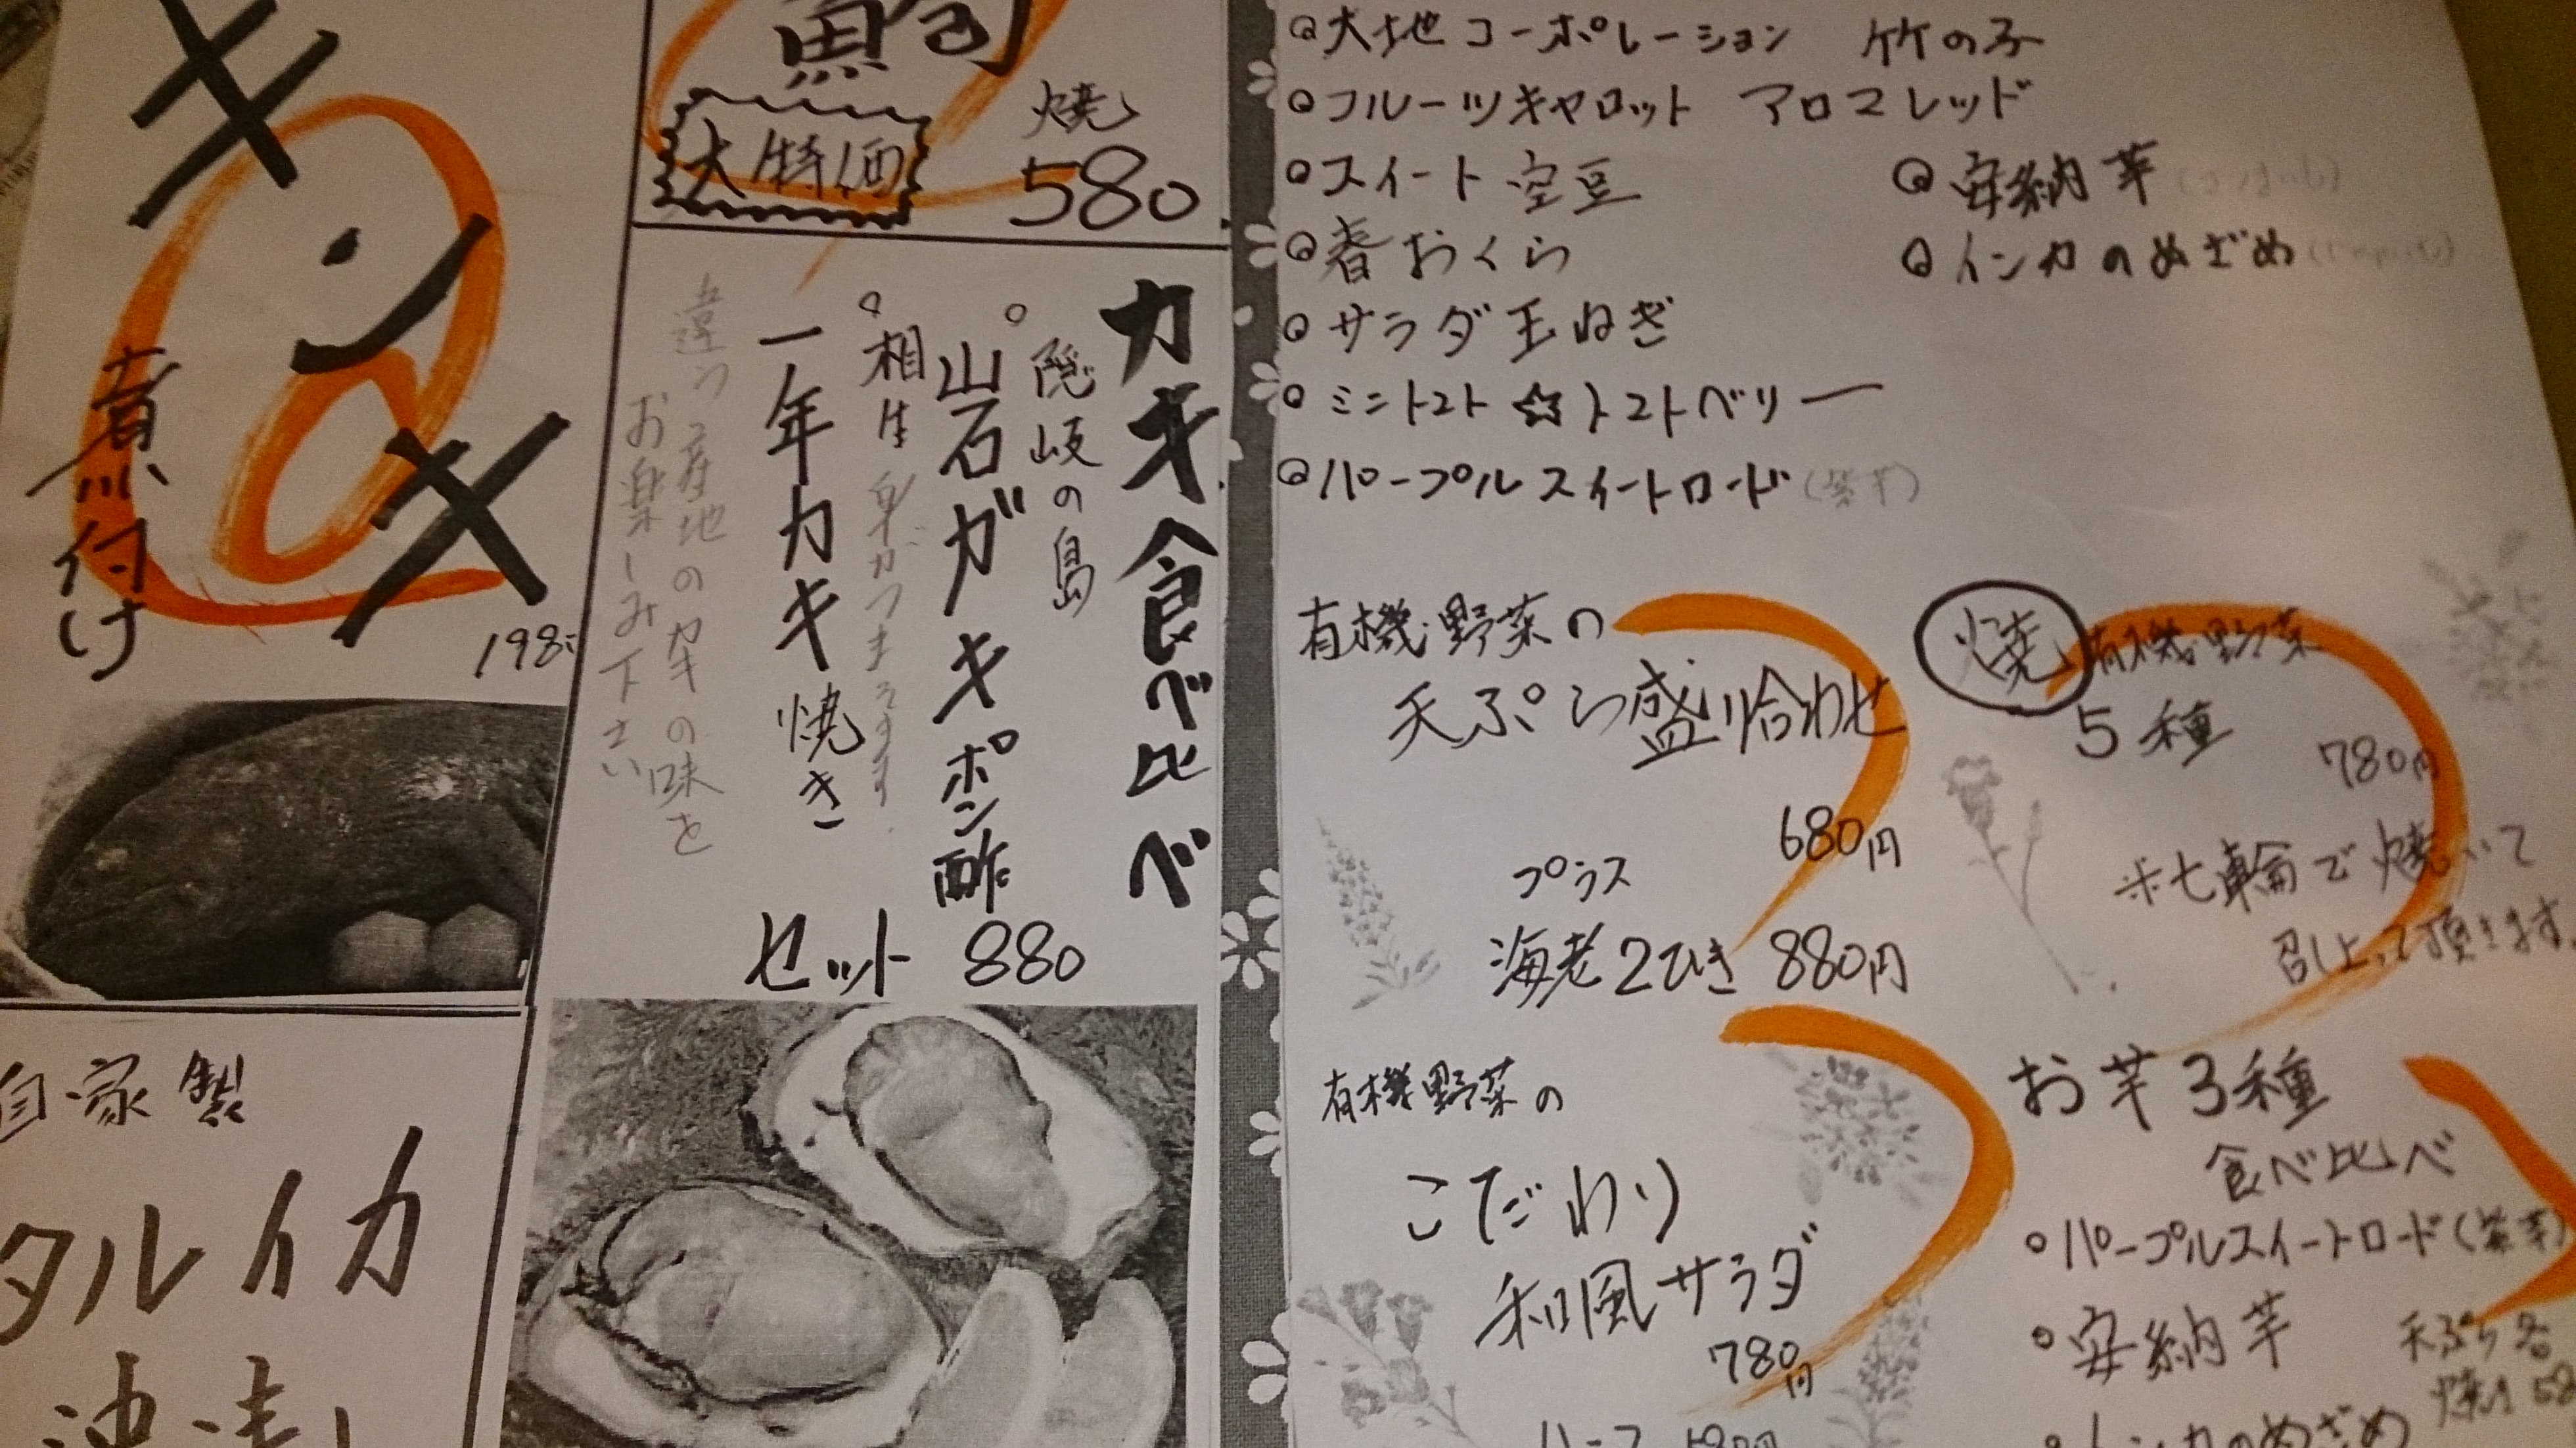 キンキ
煮付け
198
大特価
焼
580
カキ食べ比べ
隠岐の島
山石ガキポン酢
相生 身がつまってます
一年カキ焼き
違う産地のカキの味を
お楽しみ下さい
セット 880
自家製
タルイカ
大地コーポレーション 竹の子
フルーツキャロット アロマレッド
スイート空豆
安納芋
春おくら
インカのめざめ
サラダ玉ねぎ
ミニトマト ☆トマトベリー
パープルスイートロード(紫芋)
有機野菜の
天ぷら盛り合わせ
680円
プラス
海老2ひき 880円
焼 有機野菜
5種
780円
※七輪で焼いて
召し上って頂きます
有機野菜の
こだわり
和風サラダ
780円
ハーフ
お芋3種
食べ比べ
パープルスイートロード(紫芋)
安納芋
インカのめざめ
天ぷら 各